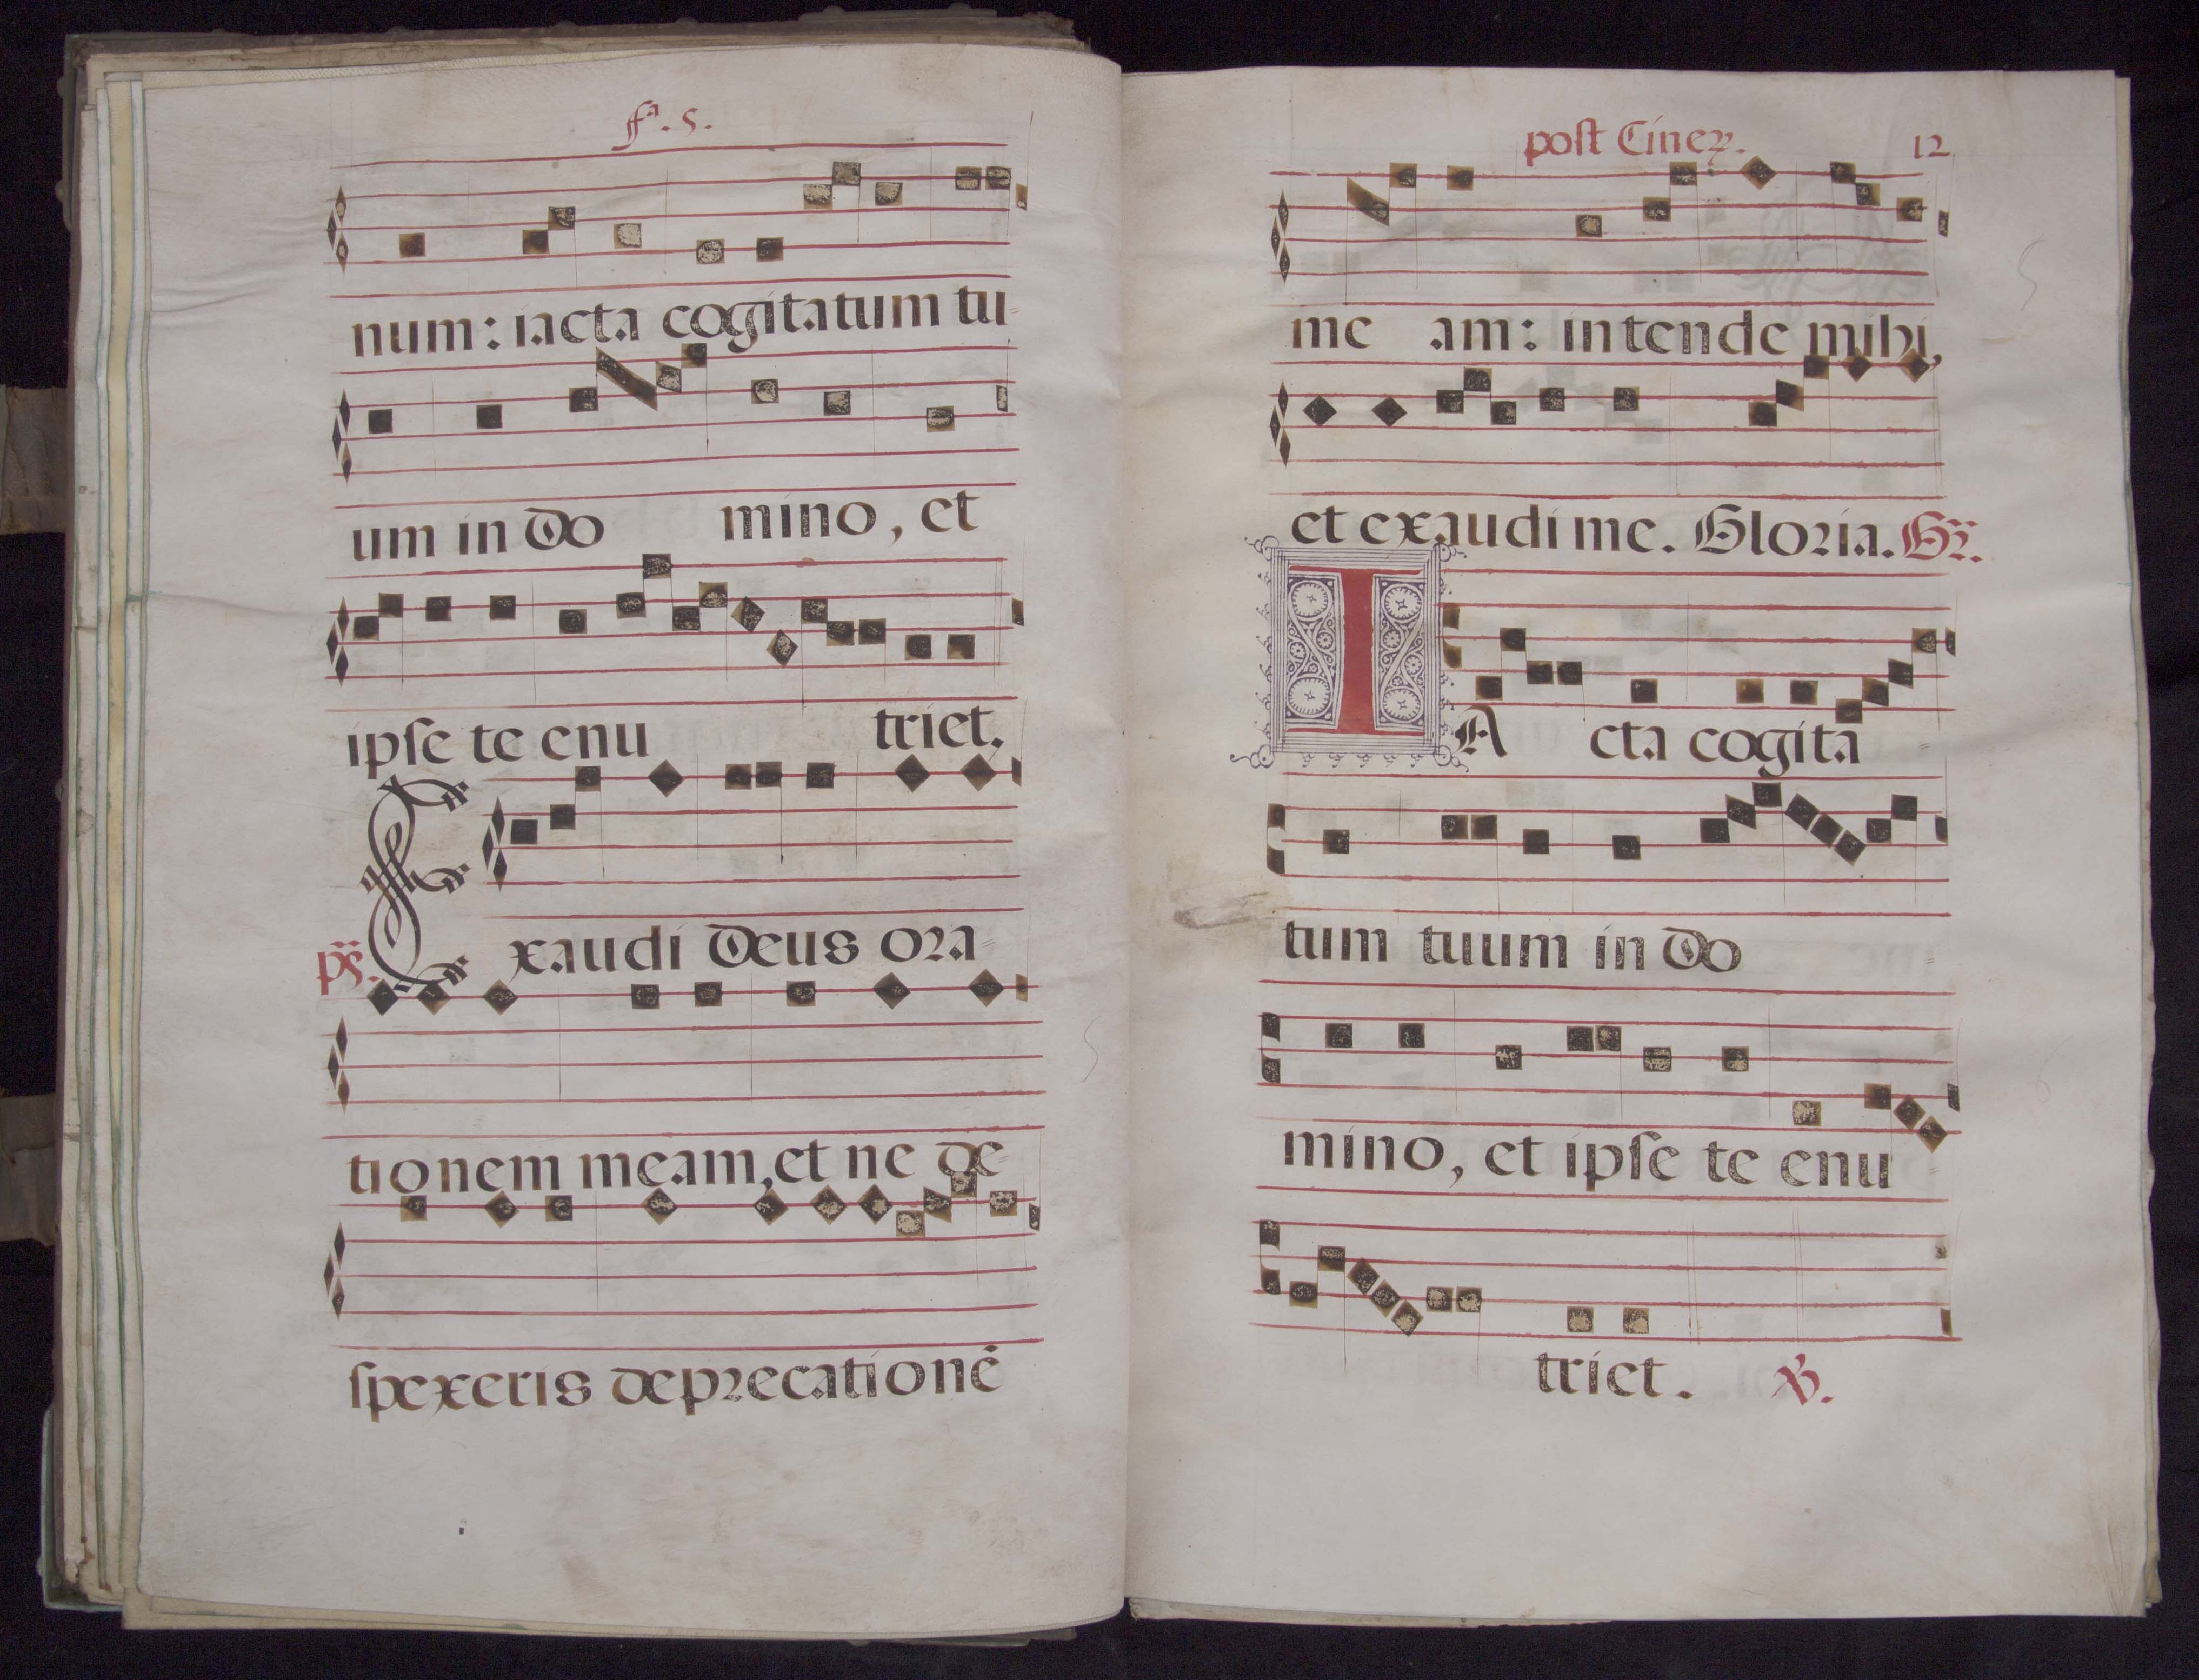 fª. 5.
num: iacta cogitatum tu=
um in do mino, et
ipſe te enu triet.
ps. Exaudi deus ora=
tionem meam, et ne de=
ſpexeris deprecationē
poſt Cineꝝ. 12
me am: intende mihi,
et exaudi me. Gloria. Gr.
IA cta cogita
tum tuum in do
mino, et ipſe te enu=
triet. ℣.